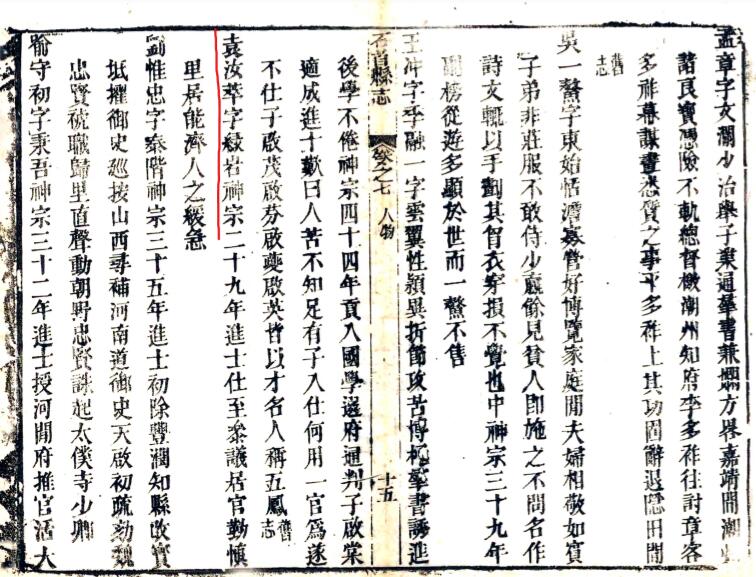 孟章字文瀾少治舉子業通羣書兼嫺方畧嘉靖間潮
諸良寶憑險不軌總督檄潮州知府李多祚往討章客
多祚幕謀畫悉質之事平多祚上其功固辭退隱田間
舊志
吳一鰲字東始恬澹寡營好博覽家庭間夫婦相敬如賓
子弟非莊服不敢侍少餘見貧人即施之不問名作
詩文輒以手劃其衣穿損不覺也中神宗三十九年
副榜從遊多顯於世而一鰲不售
王冲字季融一字雲翼性穎異折節攻苦博極羣書誘進
石首縣志 卷之七 人物 十五
後學不倦神宗四十四年貢入國學選府通判子啟棠
適成進士歎曰人苦不知足有子入仕何用一官爲遂
不仕子啟茂啟芬啟夔啟英皆以才名人稱五鳳舊志
袁汝萃字綠岩神宗二十九年進士仕至叅議居官勤慎
里居能濟人之緩急
劉惟忠字泰階神宗三十五年進士初除豐潤知縣改寶
坻擢御史廵按山西尋補河南道御史天啟初疏劾魏
忠賢褫職歸里直聲動朝野忠賢誅起太僕寺少卿
喻守初字秉吾神宗三十二年進士授河間府推官活大